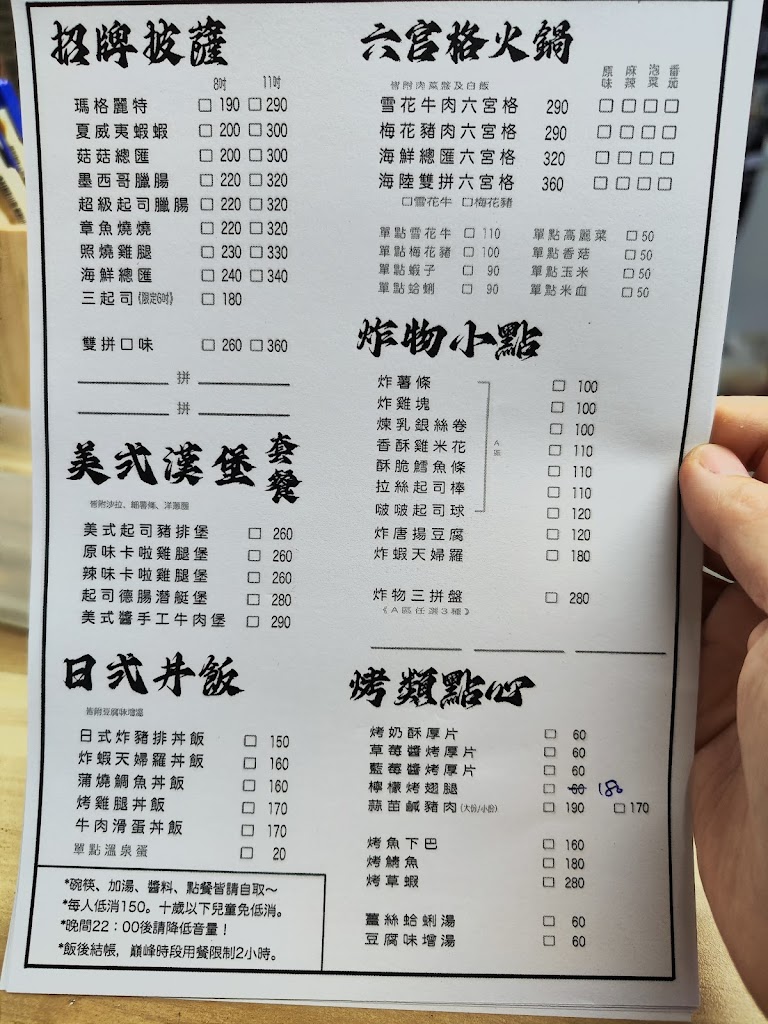 招牌披薩
8吋 11吋
瑪格麗特 190 290
夏威夷蝦蝦 200 300
菇菇總匯 200 300
墨西哥臘腸 220 320
超級起司臘腸 220 320
章魚燒燒 220 320
照燒雞腿 230 330
海鮮總匯 240 340
三起司《限定6吋》 180
雙拼口味 260 360
拼
拼
美式漢堡套餐
皆附沙拉、細薯條、洋蔥圈
美式起司豬排堡 260
原味卡啦雞腿堡 260
辣味卡啦雞腿堡 260
起司德腸潛艇堡 280
美式醬手工牛肉堡 290
日式丼飯
皆附豆腐味增湯
日式炸豬排丼飯 150
炸蝦天婦羅丼飯 160
蒲燒鯛魚丼飯 160
烤雞腿丼飯 170
牛肉滑蛋丼飯 170
單點溫泉蛋 20
*碗筷、加湯、醬料、點餐皆請自取～
*每人低消150。十歲以下兒童免低消。
*晚間22：00後請降低音量！
*飯後結帳，巔峰時段用餐限制2小時。
六宮格火鍋
皆附肉菜盤及白飯
原味 麻辣 泡菜 番茄
雪花牛肉六宮格 290
梅花豬肉六宮格 290
海鮮總匯六宮格 320
海陸雙拼六宮格 360
雪花牛 梅花豬
單點雪花牛 110 單點高麗菜 50
單點梅花豬 100 單點香菇 50
單點蝦子 90 單點玉米 50
單點蛤蜊 90 單點米血 50
炸物小點
炸薯條 100
炸雞塊 100
煉乳銀絲卷 100
香酥雞米花 110
A區
酥脆鱈魚條 110
拉絲起司棒 110
啵啵起司球 120
炸唐揚豆腐 120
炸蝦天婦羅 180
炸物三拼盤 280
《A區任選3種》
烤類點心
烤奶酥厚片 60
草莓醬烤厚片 60
藍莓醬烤厚片 60
檸檬烤翅腿 60 180
蒜苗鹹豬肉(大份/小份) 190 170
烤魚下巴 160
烤鯖魚 180
烤草蝦 280
薑絲蛤蜊湯 60
豆腐味增湯 60